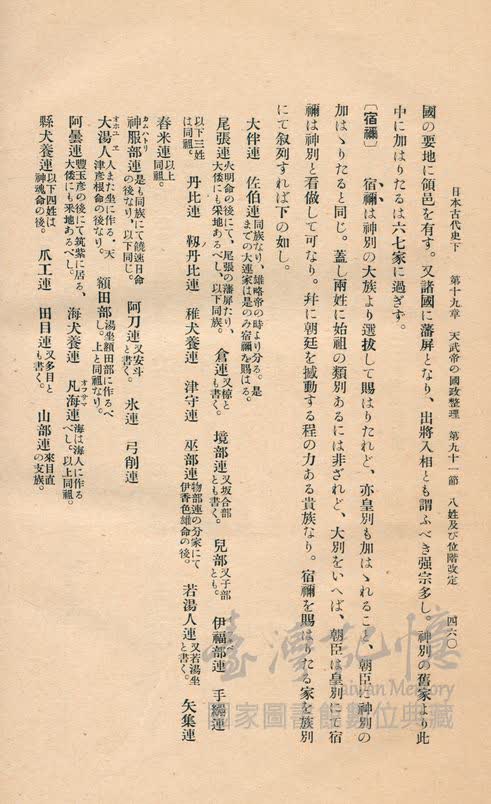 日本古代史下　第十九章　天武帝の國政整理　第九十一節　八姓及び位階改定　四六〇
國の要地に領邑を有す。又諸國に藩屏となり、出將入相とも謂ふべき强宗多し。神別の舊家より此
中に加はりたるは六七家に過ぎず。
〔宿禰〕　宿禰は神別の大族より選拔して賜はりたれど、亦皇別も加はゝれること、朝臣に神別の
加はゝりたると同じ。蓋し兩姓に始祖の類別あるには非ざれど、大別をいへば、朝臣は皇別にて宿
禰は神別と看做して可なり。幷に朝廷を撼動する程の力ある貴族なり。宿禰を賜はりたる家を族別
にて叙列すれば下の如し。
大伴連　佐伯連同族なり、雄略帝の時より分る。是までの大連家は是のみ宿禰を賜はる。
尾張連火明命の後にて、尾張の藩屏たり、大倭にも釆地あるべし、以下同族。　倉連又椋とも書く。　境部連又坂合部とも書く。　兒部又子部とも。　伊福部連　手繦連
以下三姓は同祖。　丹比連　靱丹比連　稚犬養連　津守連　巫部連物部連の分家にて伊香色雄命の後。　若湯人連又若湯坐と書く。　矢集連
舂米連以上同祖。
神服部連是も同族にて饒速日命の後なり、以下同じ。　阿刀連又安斗と書く。　氷連　弓削連
カムハトリ
大湯人人また坐に作る。天津彦根命の後なり。　額田部湯坐額田部に作るべし。上と同祖なり。
オホユヱ
阿曇連豐玉彦の後にて筑紫に居る、大倭にも釆地あるべし。　海犬養連　凡海連海は海人に作るべし。以上同祖。
オフサマ
縣犬養連以下四姓は神魂命の後。　爪工連　田目連又多目とも書く。　山部連來目直の支族。
臺灣記憶
Taiwan Memory
國家圖書館數位典藏